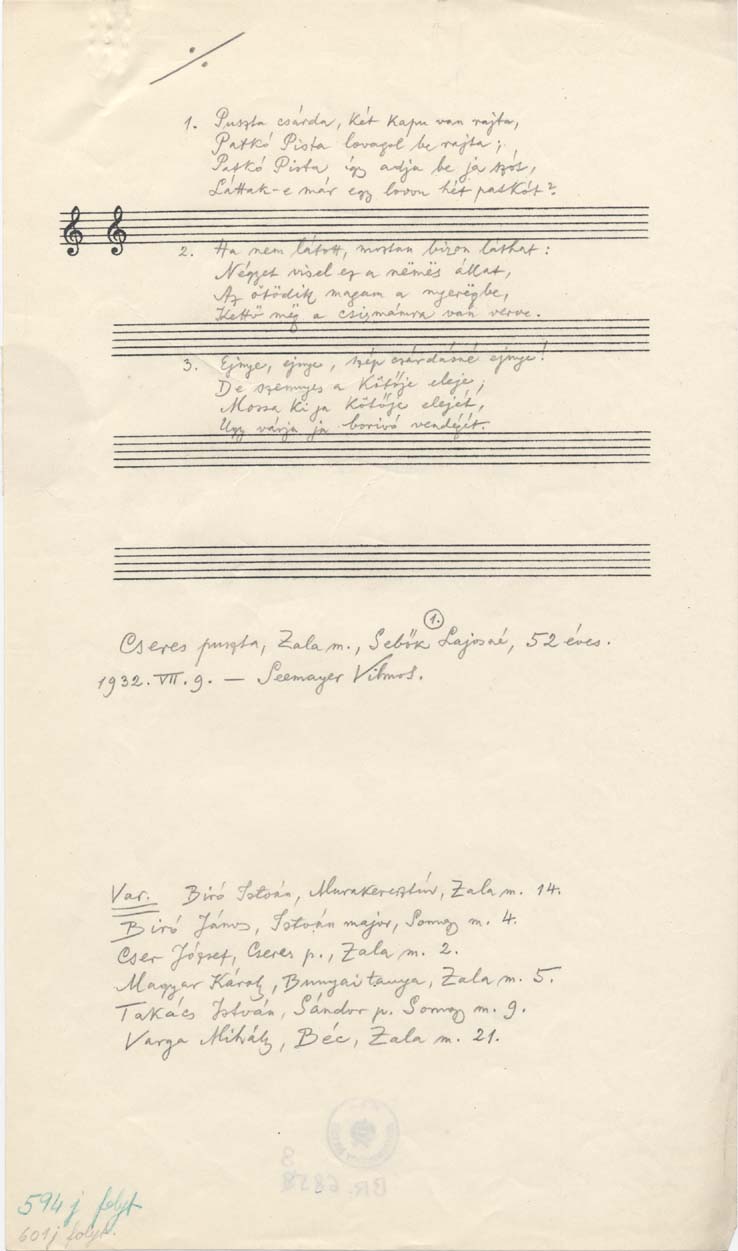 1. Puszta csárda, két kapu van rajta,
Patkó Pista lovagol be rajta;
Patkó Pista így adja be ja szót,
Láttak-e már egy lovon hét patkót?
2. Ha nem látott, mostan bizon láthat:
Négyet visel ez a nëmës állat,
Az ötödik magam a nyerëgbe,
Kettő mëg a csizmámra van verve.
3. Ejnye, ejnye, szép csárdásné ejnye!
De szennyes a kötője eleje;
Mossa ki ja kötője elejét,
Ugy várja ja borivó vendégit.
1.
Cseres puszta, Zala m., Sebők Lajosné, 52 éves.
1932. VII. 9. — Seemayer Vilmos.
Var. Biró István, Murakeresztúr, Zala m. 14.
Biró János, István major, Somogy m. 4.
Cser József, Cseres p., Zala m. 2.
Magyar Károly, Bunyai tanya, Zala m. 5.
Takács István, Sándor p. Somogy m. 9.
Varga Mihály, Béc, Zala m. 21.
594 j folyt
601 j folyt.